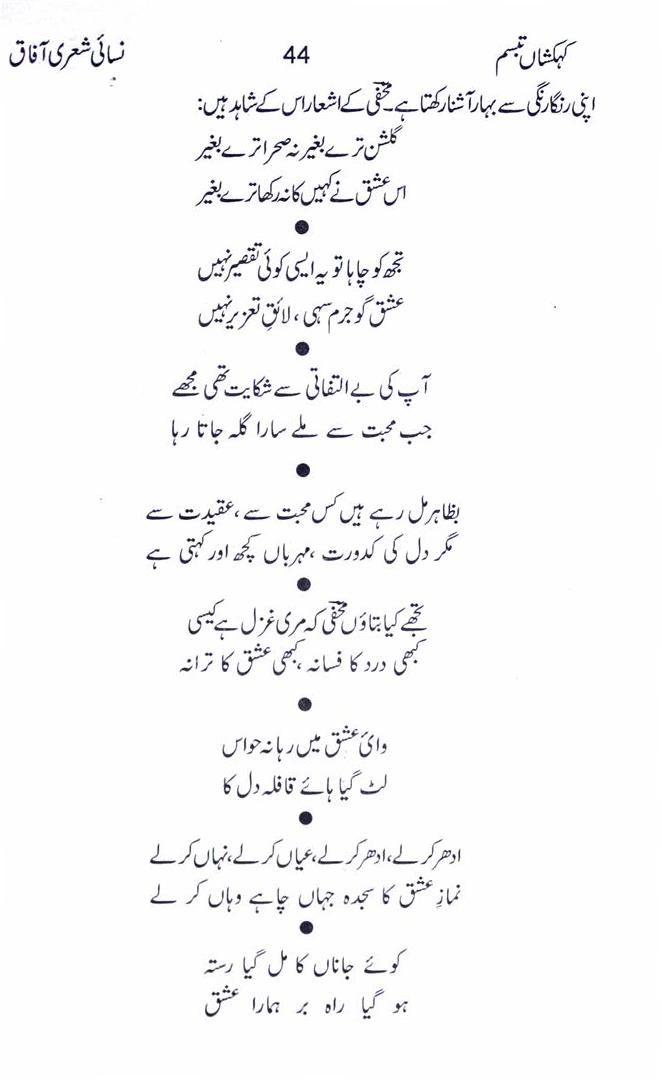 کہکشاں تبسم 44 نسائی شعری آفاق
اپنی رنگارنگی سے بہار آشنا رکھتا ہے۔ مخفیؔ کے اشعار اس کے شاہد ہیں:
گلشن ترے بغیر نہ صحرا ترے بغیر
اس عشق نے کہیں کا نہ رکھا ترے بغیر
●
تجھ کو چاہا تو یہ ایسی کوئی تقصیر نہیں
عشق گو جرم سہی ، لائقِ تعزیر نہیں
●
آپ کی بے التفاتی سے شکایت تھی مجھے
جب محبت سے ملے سارا گلہ جاتا رہا
●
بظاہر مل رہے ہیں کس محبت سے ،عقیدت سے
مگر دل کی کدورت ،مہرباں کچھ اور کہتی ہے
●
تجھے کیا بتاؤں مخفیؔ کہ مری غزل ہے کیسی
کبھی درد کا فسانہ ،کبھی عشق کا ترانہ
●
وائ عشق میں رہا نہ حواس
لٹ گیا ہائے قافلہ دل کا
●
ادھر کرلے،ادھر کرلے،عیاں کرلے،نہاں کرلے
نمازِ عشق کا سجدہ جہاں چاہے وہاں کر لے
●
کوئے جاناں کا مل گیا رستہ
ہو گیا راہ بر ہمارا عشق